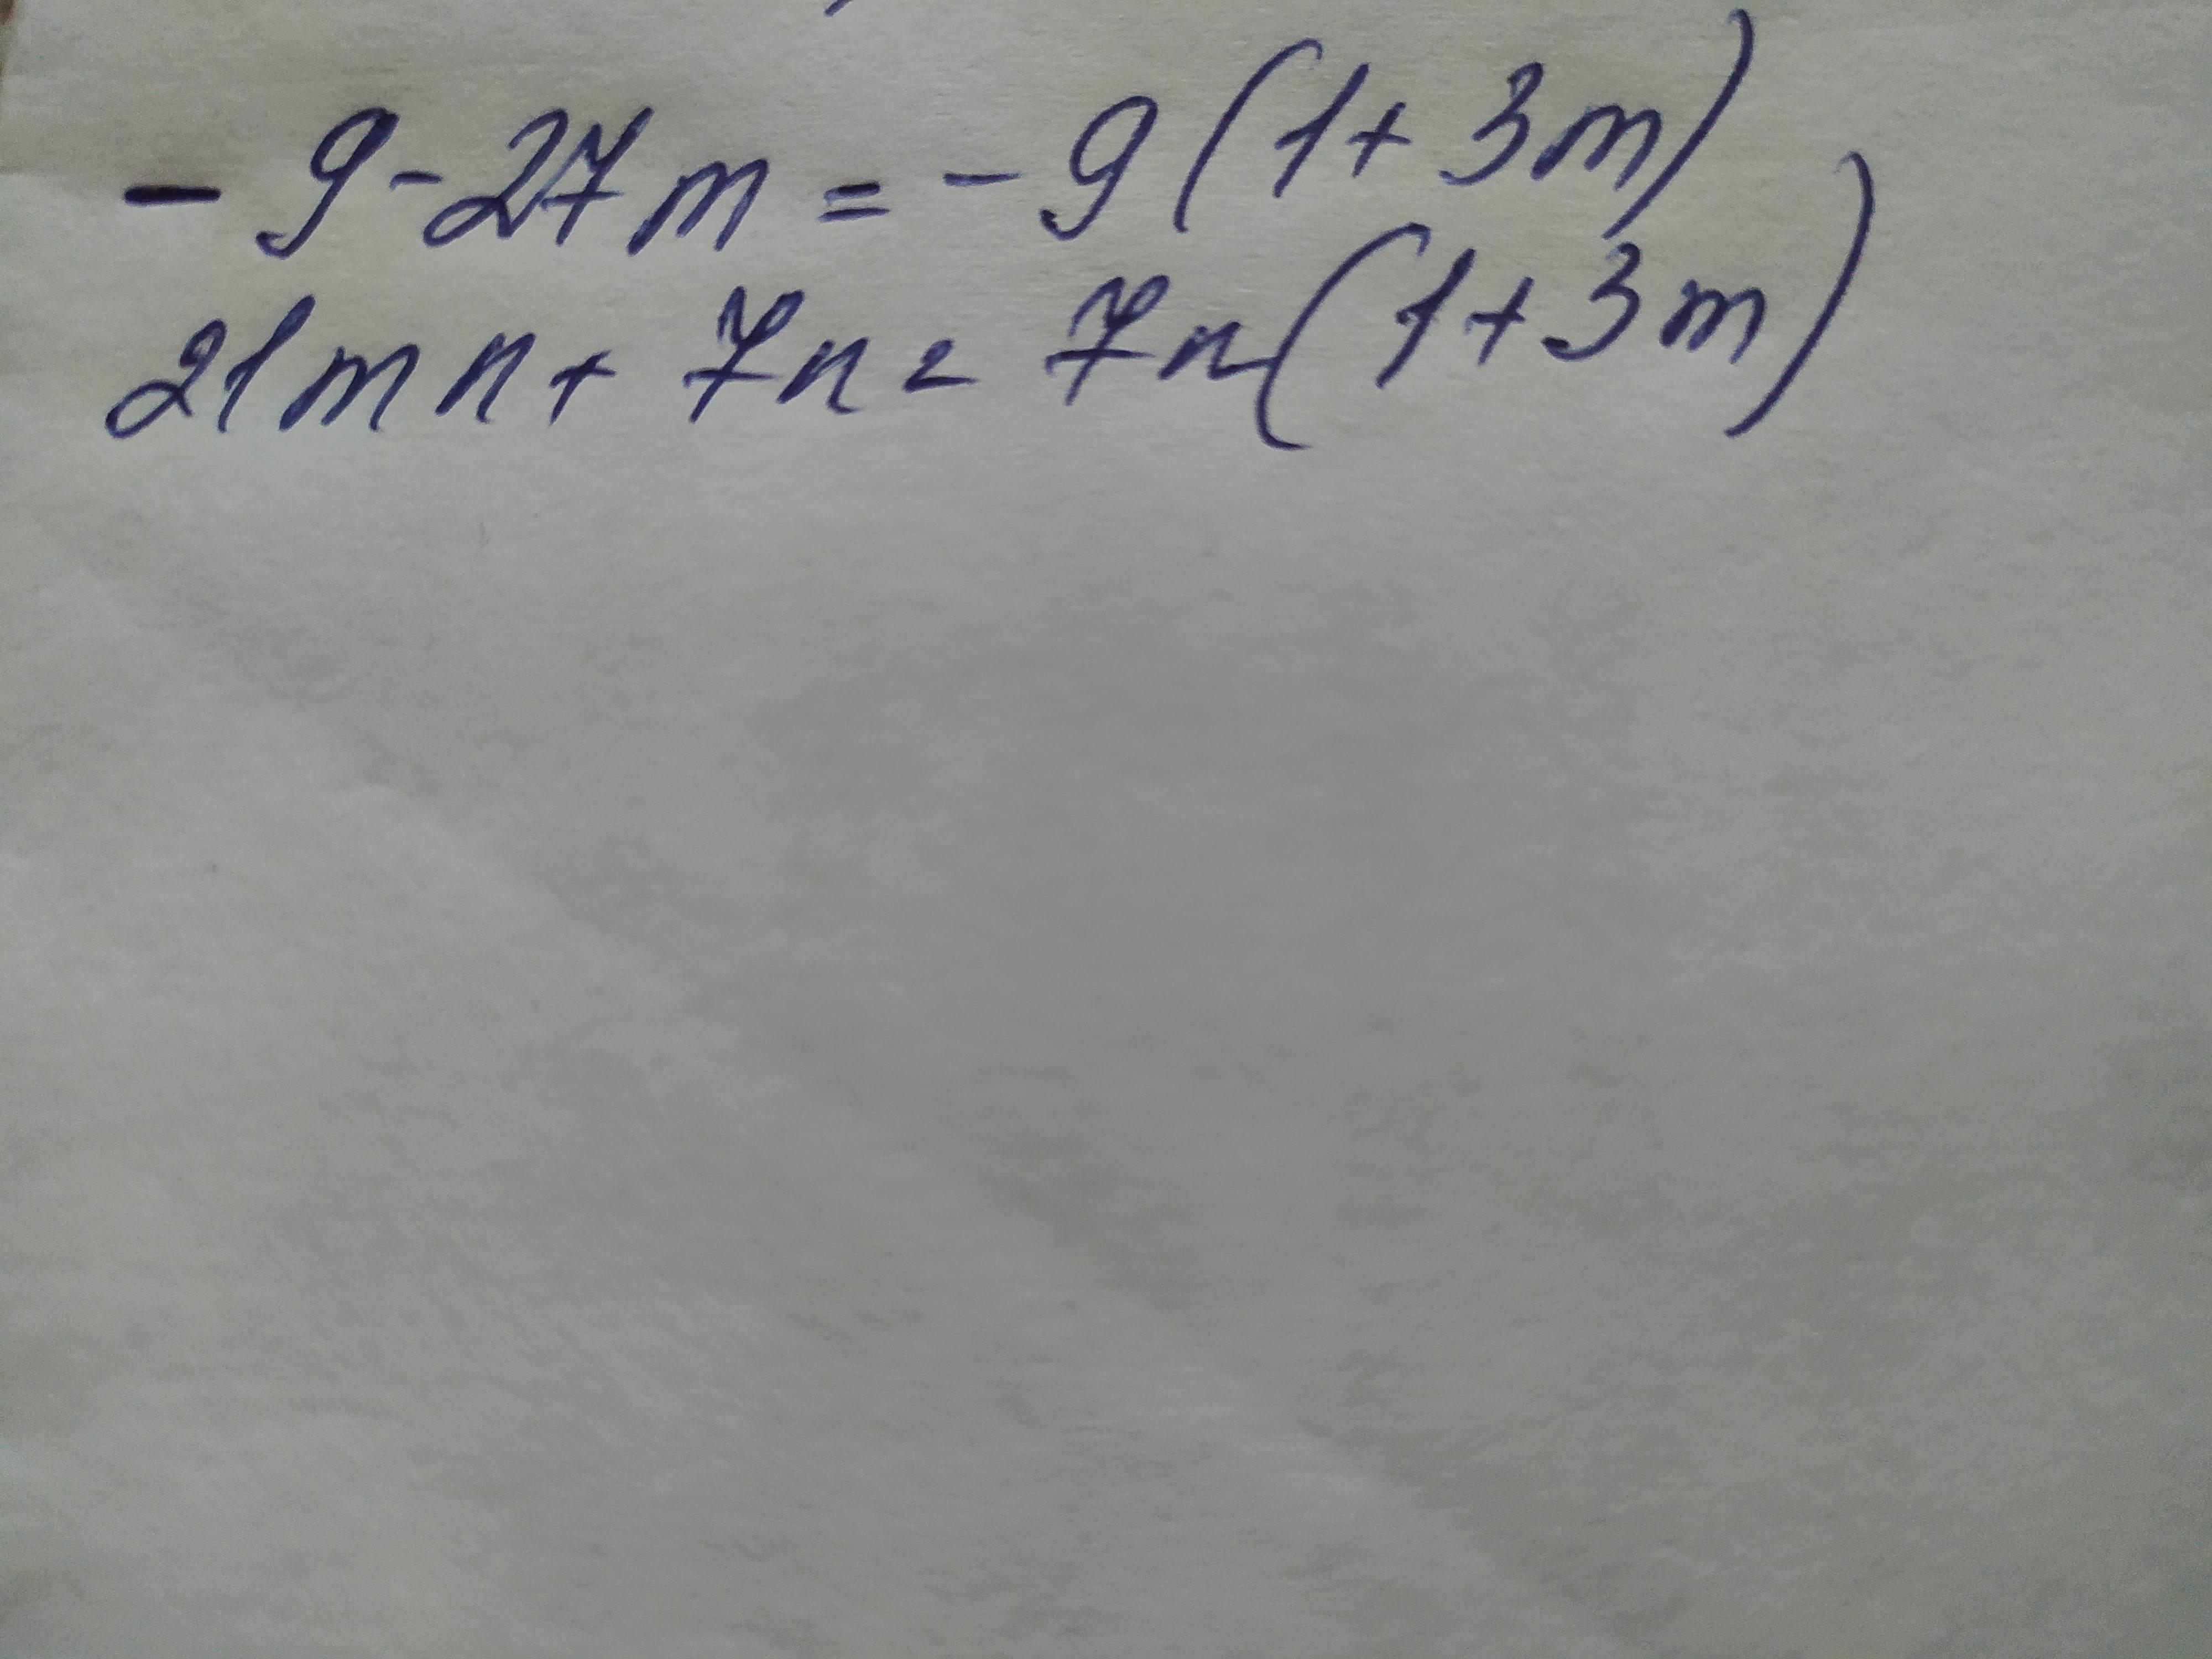 - 9 - 27m = - 9 (1 + 3m)
21mn + 7n = 7n (1 + 3m)